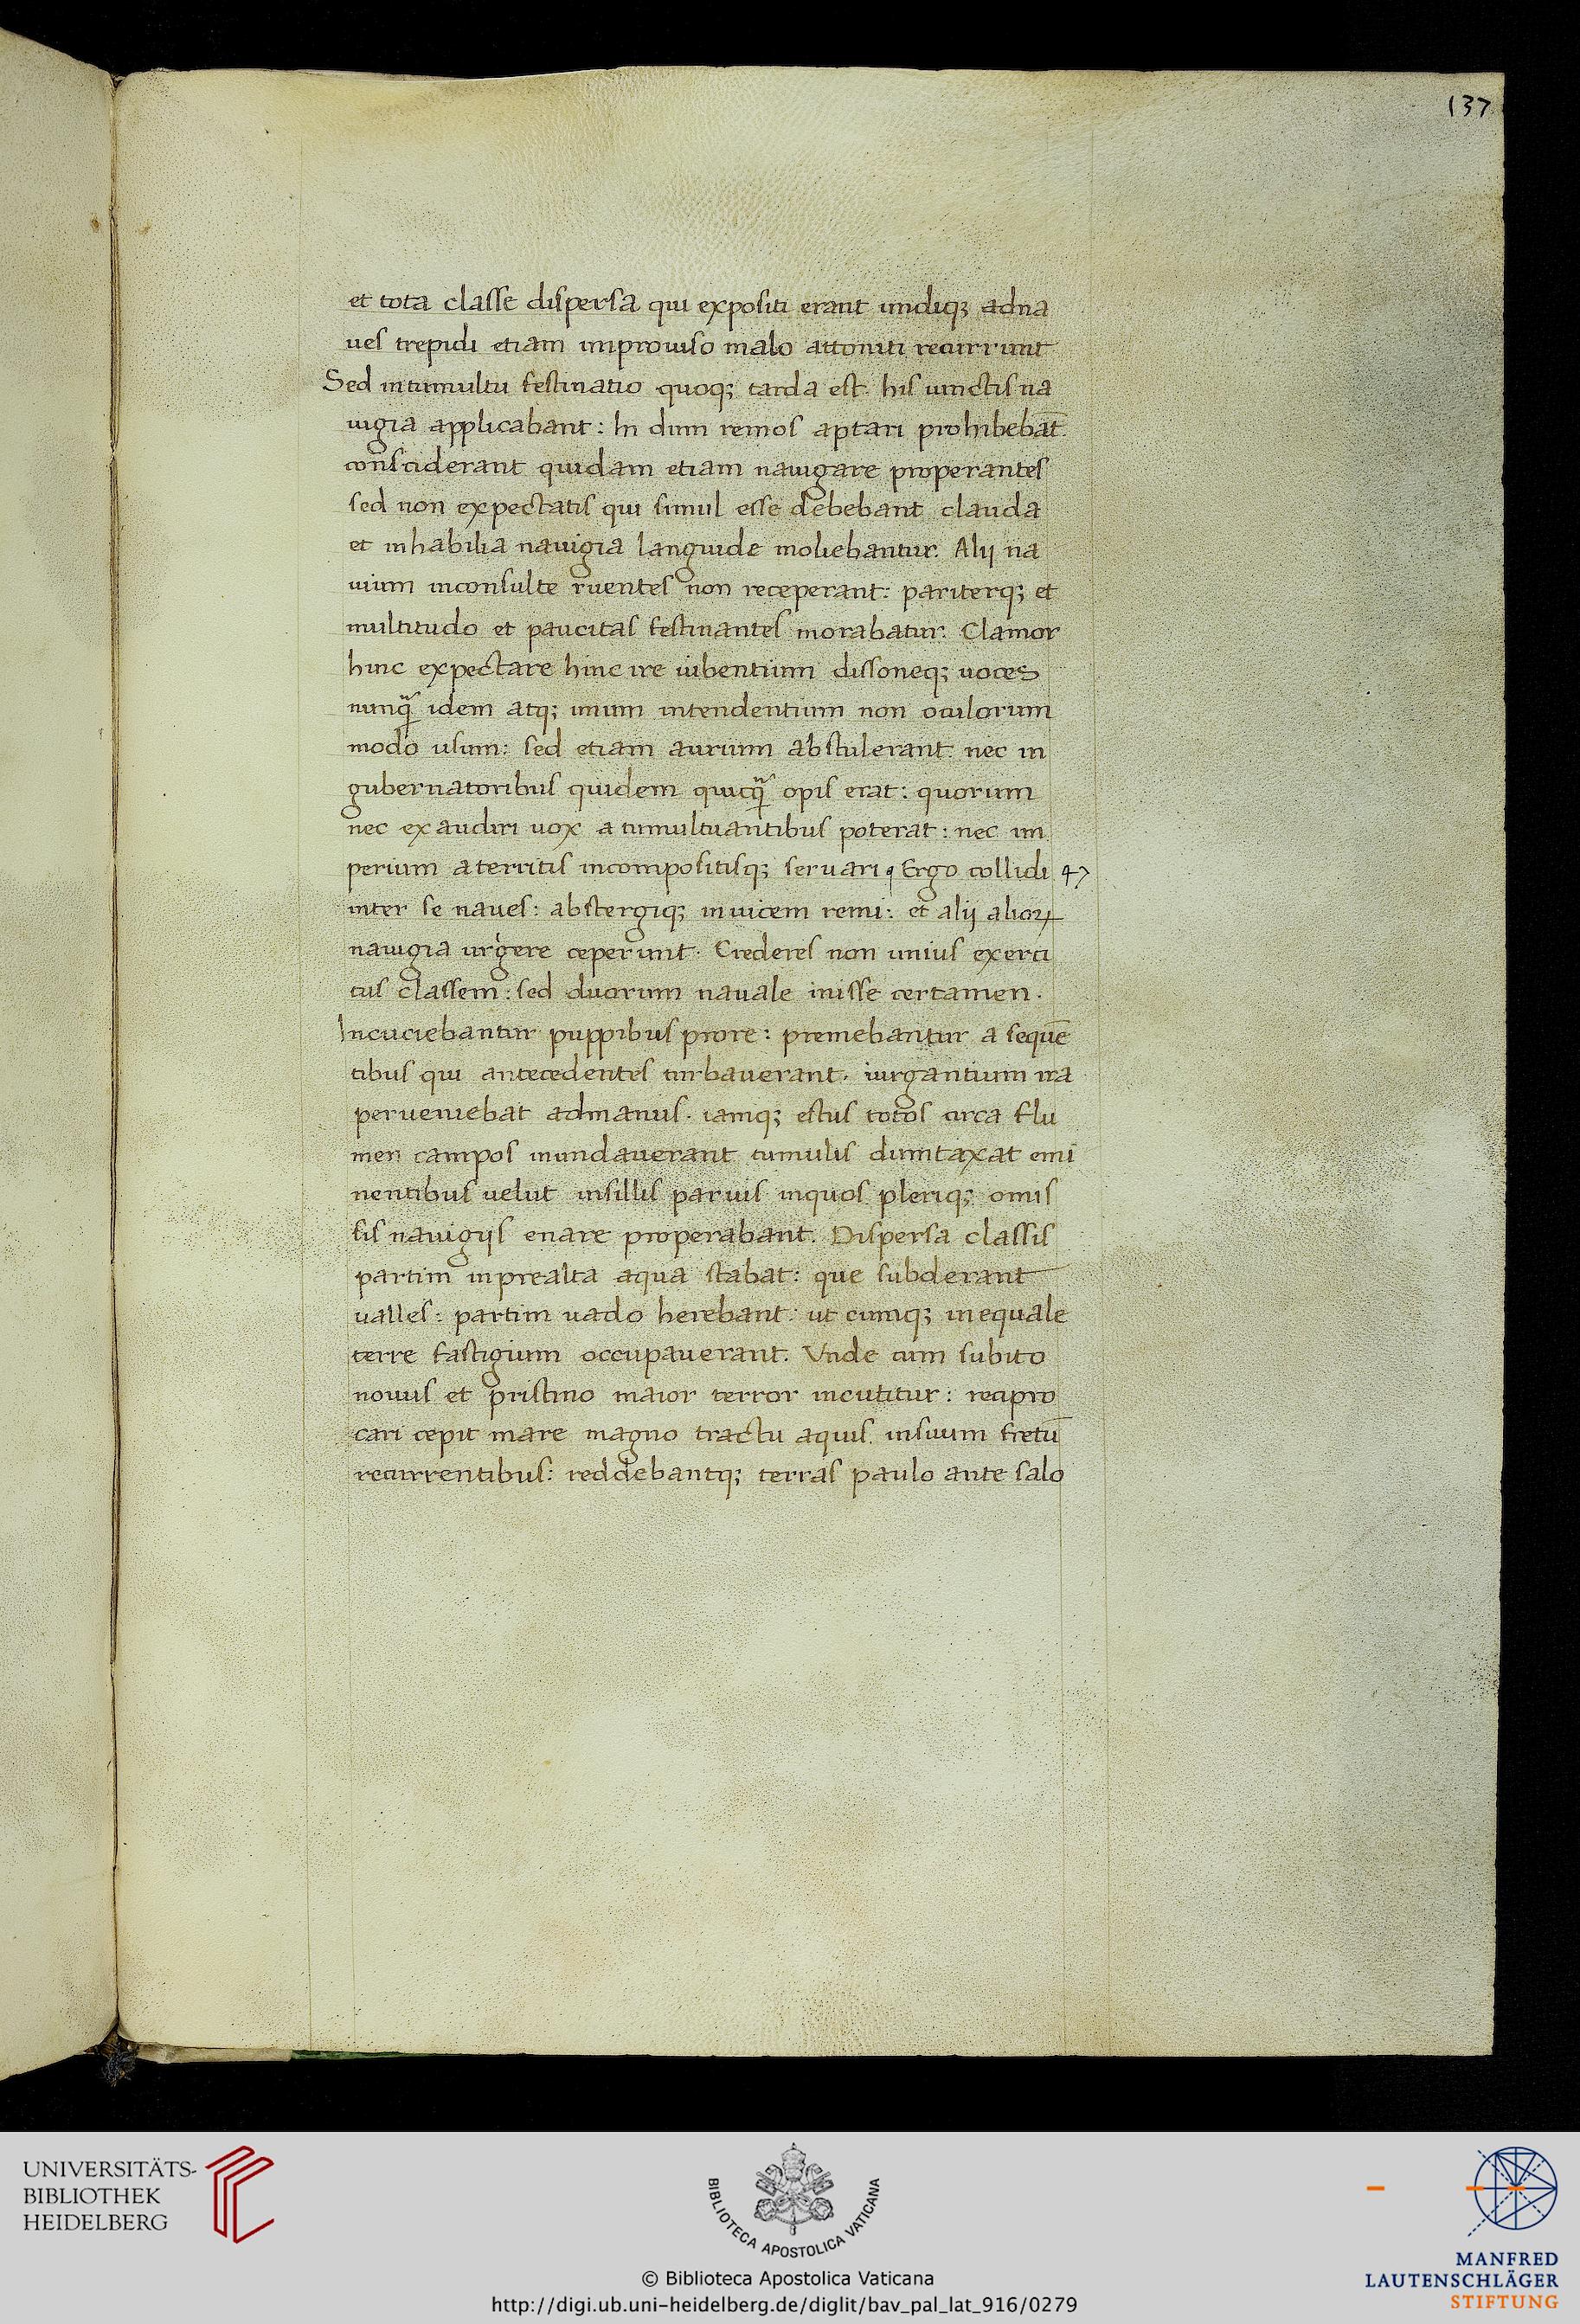 137
et tota classe dispersa qui expositi erant undiqꝫ adna
ues trepidi etiam improuiso malo attoniti recurrunt
Sed intumultu festinatio quoqꝫ tarda est. his uinctis na
uigia applicabant: In dum remos aptari prohibebāt
consciderant quidam etiam nauigare properantes
sed non expectatis qui simul esse debebant clauda
et inhabilia nauigia languide moliebantur. Alij na
uium inconsulte ruentes non receperant: pariterqꝫ et
multitudo et paucitas festinantes morabatur. Clamor
hinc expectare hinc ire iubentium dissoneqꝫ uoces
nunq̃ idem atqꝫ unum intendentium non oculorum
modo usum: sed etiam aurium abstulerant. nec in
gubernatoribus quidem quicq̃ opis erat: quorum
nec exaudiri uox a tumultuantibus poterat: nec im
perium aterritis incompositisqꝫ seruari Ergo collidi 47
inter se naues: abstergiqꝫ inuicem remi: et alij alioꝝ
nauigia urgere ceperunt. Crederes non unius exerci
tus classem: sed duorum nauale inisse certamen.
Incuciebantur puppibus prore: premebantur a sequē
tibus qui antecedentes turbauerant. iurgantium ira
perueniebat admanus. iamqꝫ estus totos circa flu
men campos inundauerant tumulis dumtaxat emi
nentibus uelut insillis paruis inquos pleriqꝫ omis
sis nauigijs enare properabant. Dispersa classis
partim inprealta aqua stabat: que subderant
ualles: partim uado herebant: ut cumqꝫ inequale
terre fastigium occupauerant. Vnde cum subito
nouus et pristino maior terror incutitur: recipro
cari cepit mare magno tractu aquis insuum fretū
recurrentibus: reddebantqꝫ terras paulo ante salo
UNIVERSITÄTS-
BIBLIOTHEK
HEIDELBERG
BIBLIOTECA APOSTOLICA VATICANA
© Biblioteca Apostolica Vaticana
http://digi.ub.uni-heidelberg.de/diglit/bav_pal_lat_916/0279
MANFRED
LAUTENSCHLÄGER
STIFTUNG